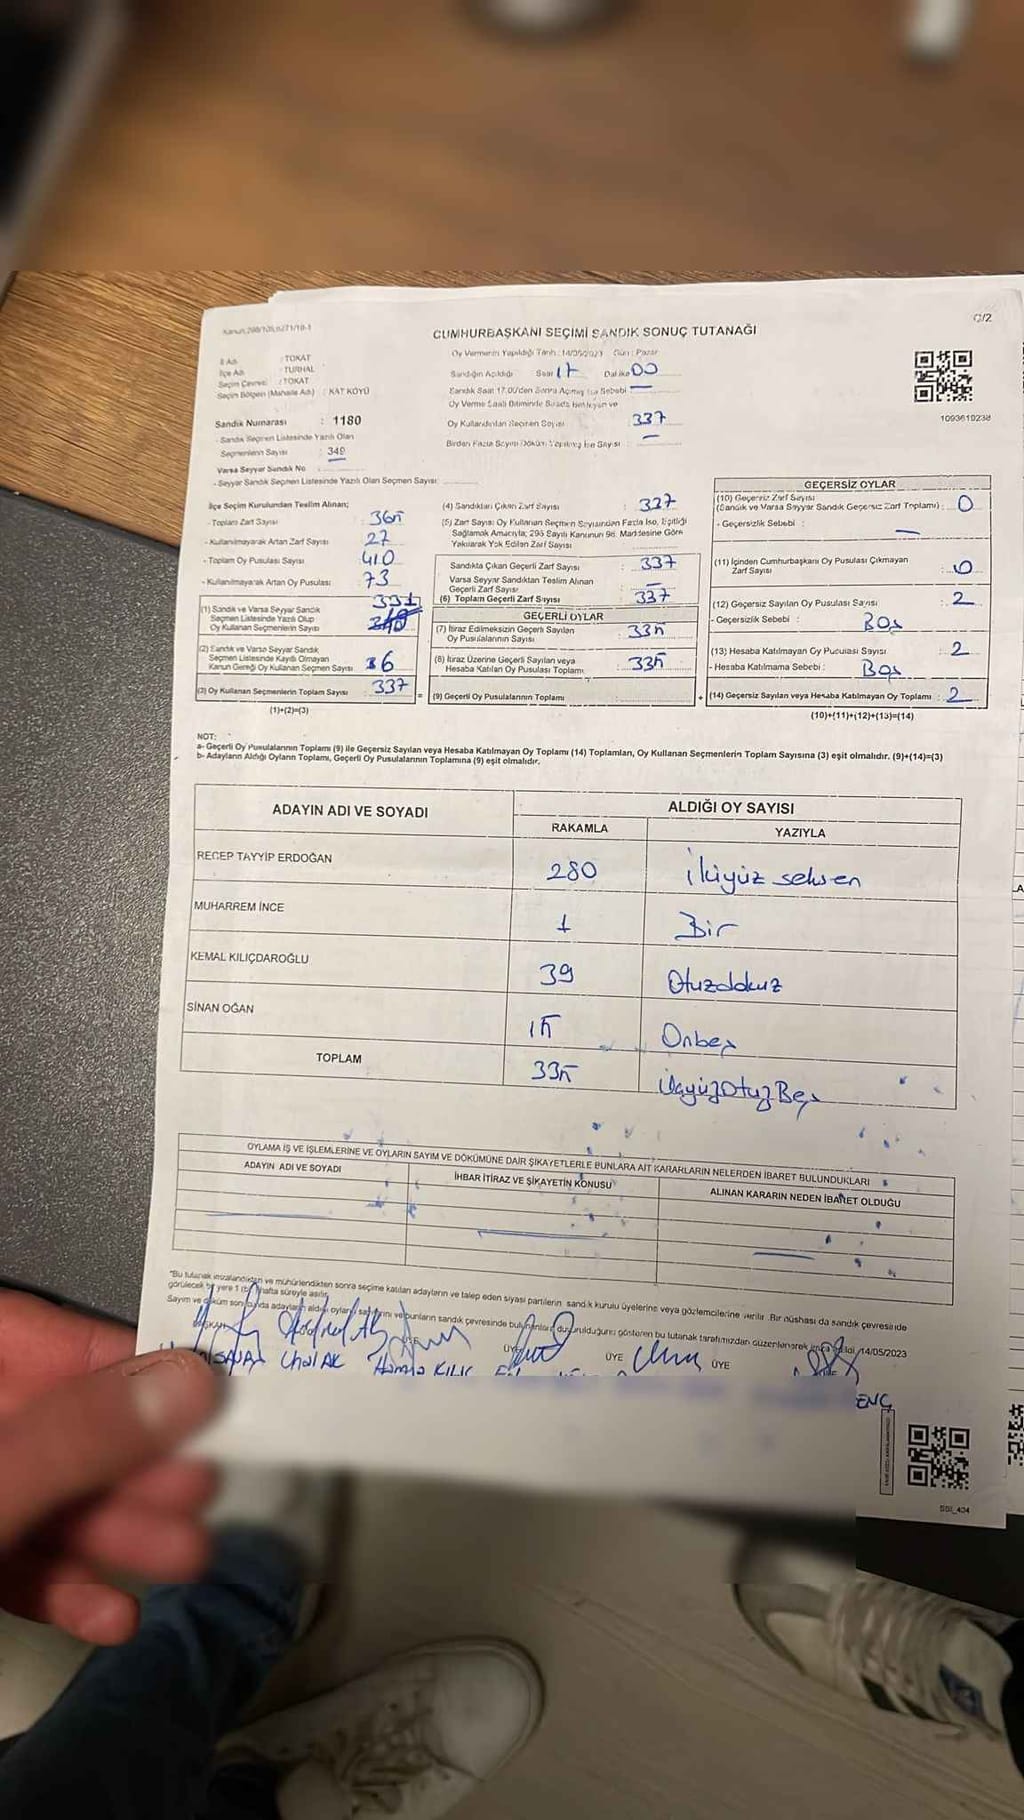 C/2
CUMHURBAŞKANI SEÇİMİ SANDIK SONUÇ TUTANAĞI
İl Adı : TOKAT
İlçe Adı : TURHAL
Seçim Çevresi : TOKAT
Seçim Bölgesi (Mahalle Adı) : KAT KÖYÜ
Sandık Numarası : 1180
- Sandık Seçmen Listesinde Yazılı Olan
Seçmenlerin Sayısı : 349
Varsa Seyyar Sandık No
- Seyyar Sandık Seçmen Listesinde Yazılı Olan Seçmen Sayısı:
Oy Vermenin Yapıldığı Tarih : 14/05/2023 Gün : Pazar
Sandığın Açıldığı Saat 17 Dakika 00
Sandık Saat 17.00'den Sonra Açılmış İse Sebebi —
Oy Verme Saati Bitiminde Sırada Bekleyen ve
Oy Kullandırılan Seçmen Sayısı 337
Birden Fazla Sayım Döküm Yapılmış İse Sayısı : —
1093610238
İlçe Seçim Kurulundan Teslim Alınan;
- Toplam Zarf Sayısı : 365
- Kullanılmayarak Artan Zarf Sayısı : 27
- Toplam Oy Pusulası Sayısı : 410
- Kullanılmayarak Artan Oy Pusulası : 73
(1) Sandık ve Varsa Seyyar Sandık
Seçmen Listesinde Yazılı Olup
Oy Kullanan Seçmenlerin Sayısı 331
(2) Sandık ve Varsa Seyyar Sandık
Seçmen Listesinde Kayıtlı Olmayan
Kanun Gereği Oy Kullanan Seçmen Sayısı 6
(3) Oy Kullanan Seçmenlerin Toplam Sayısı : 337
(1)+(2)=(3)
(4) Sandıktan Çıkan Zarf Sayısı : 337
(5) Zarf Sayısı Oy Kullanan Seçmen Sayısından Fazla İse, Eşitliği
Sağlamak Amacıyla; 298 Sayılı Kanunun 98. Maddesine Göre
Yakılarak Yok Edilen Zarf Sayısı
Sandıkta Çıkan Geçerli Zarf Sayısı : 337
Varsa Seyyar Sandıktan Teslim Alınan
Geçerli Zarf Sayısı : —
(6) Toplam Geçerli Zarf Sayısı : 337
GEÇERLİ OYLAR
(7) İtiraz Edilmeksizin Geçerli Sayılan
Oy Pusulalarının Sayısı : 335
(8) İtiraz Üzerine Geçerli Sayılan veya
Hesaba Katılan Oy Pusulası Toplamı : 335
(9) Geçerli Oy Pusulalarının Toplamı :
GEÇERSİZ OYLAR
(10) Geçersiz Zarf Sayısı
(Sandık ve Varsa Seyyar Sandık Geçersiz Zarf Toplamı) : 0
- Geçersizlik Sebebi : —
(11) İçinden Cumhurbaşkanı Oy Pusulası Çıkmayan
Zarf Sayısı : 0
(12) Geçersiz Sayılan Oy Pusulası Sayısı : 2
- Geçersizlik Sebebi : Boş
(13) Hesaba Katılmayan Oy Pusulası Sayısı : 2
- Hesaba Katılmama Sebebi : Boş
(14) Geçersiz Sayılan veya Hesaba Katılmayan Oy Toplamı : 2
(10)+(11)+(12)+(13)=(14)
NOT:
a- Geçerli Oy Pusulalarının Toplamı (9) ile Geçersiz Sayılan veya Hesaba Katılmayan Oy Toplamı (14) Toplamları, Oy Kullanan Seçmenlerin Toplam Sayısına (3) eşit olmalıdır. (9)+(14)=(3)
b- Adayların Aldığı Oyların Toplamı, Geçerli Oy Pusulalarının Toplamına (9) eşit olmalıdır.
ADAYIN ADI VE SOYADI ALDIĞI OY SAYISI
RAKAMLA YAZIYLA
RECEP TAYYİP ERDOĞAN 280 İkiyüz seksen
MUHARREM İNCE 1 Bir
KEMAL KILIÇDAROĞLU 39 Otuzdokuz
SİNAN OĞAN 15 Onbeş
TOPLAM 335 ÜçyüzOtuzBeş
OYLAMA İŞ VE İŞLEMLERİNE VE OYLARIN SAYIM VE DÖKÜMÜNE DAİR ŞİKAYETLERLE BUNLARA AİT KARARLARIN NELERDEN İBARET BULUNDUKLARI
ADAYIN ADI VE SOYADI İHBAR İTİRAZ VE ŞİKAYETİN KONUSU ALINAN KARARIN NEDEN İBARET OLDUĞU
"Bu tutanak imzalandıktan ve mühürlendikten sonra seçime katılan adayların ve talep eden siyasi partilerin sandık kurulu üyelerine veya gözlemcilerine verilir. Bir nüshası da sandık çevresinde
görülecek bir yere 1 (bir) hafta süreyle asılır.
Sayım ve döküm sonucunda adayların aldığı oyların sayılarını ve bunların sandık çevresinde bulunanlara duyurulduğunu gösteren bu tutanak tarafımızdan düzenlenerek imza edildi. 14/05/2023
ÜYE ÜYE ÜYE
KILIÇ
ENÇ